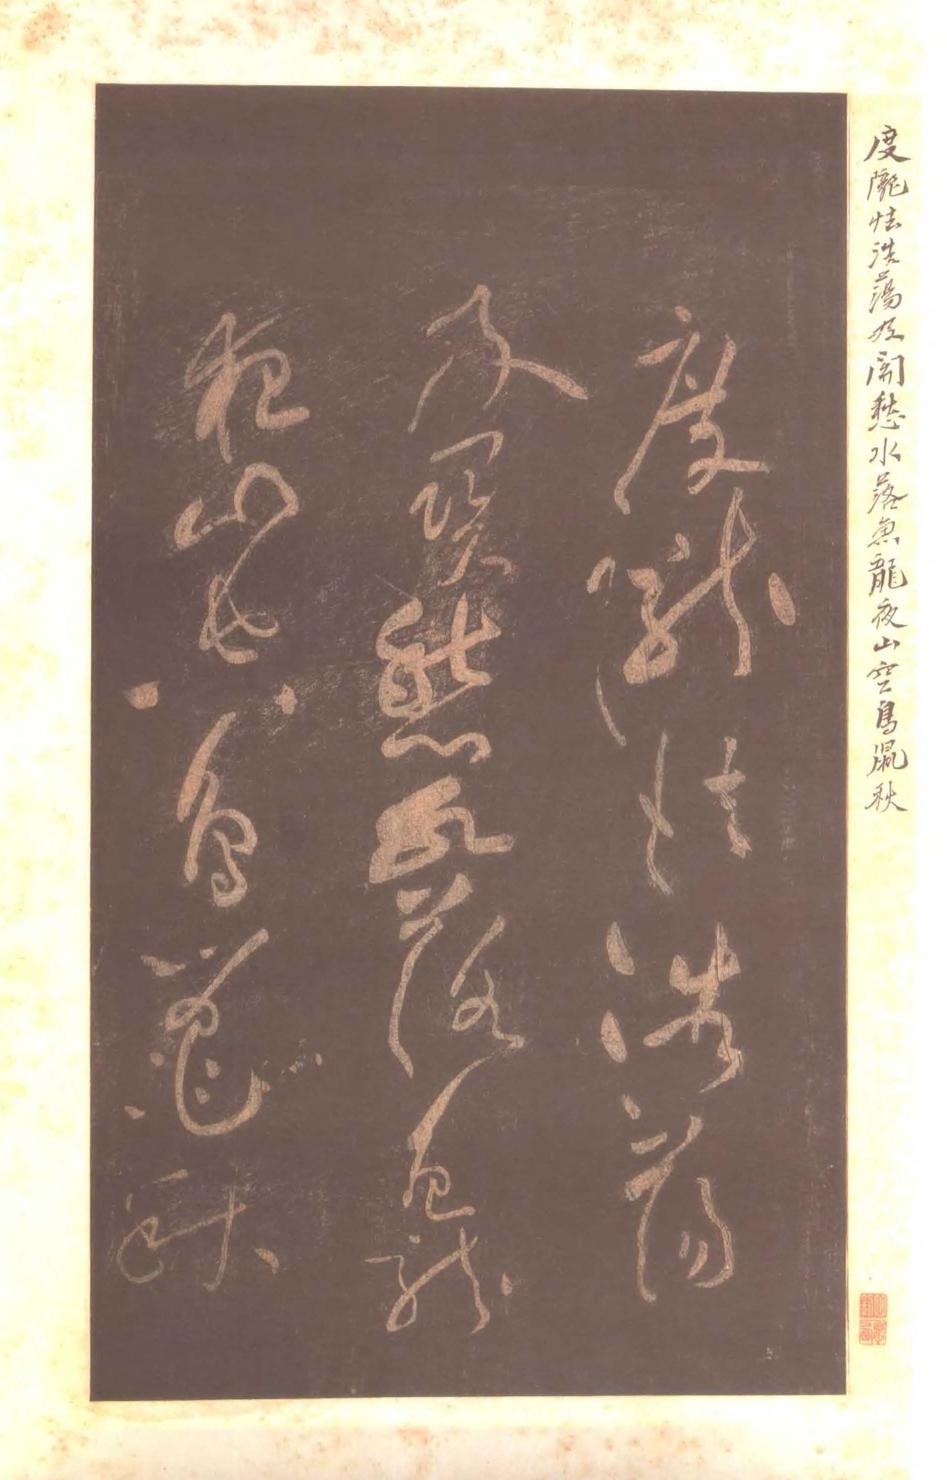 度隴怯浩蕩及關愁水落魚龍夜山空鳥鼠秋
度隴怯浩蕩
及關愁水落魚龍
夜山空鳥鼠秋